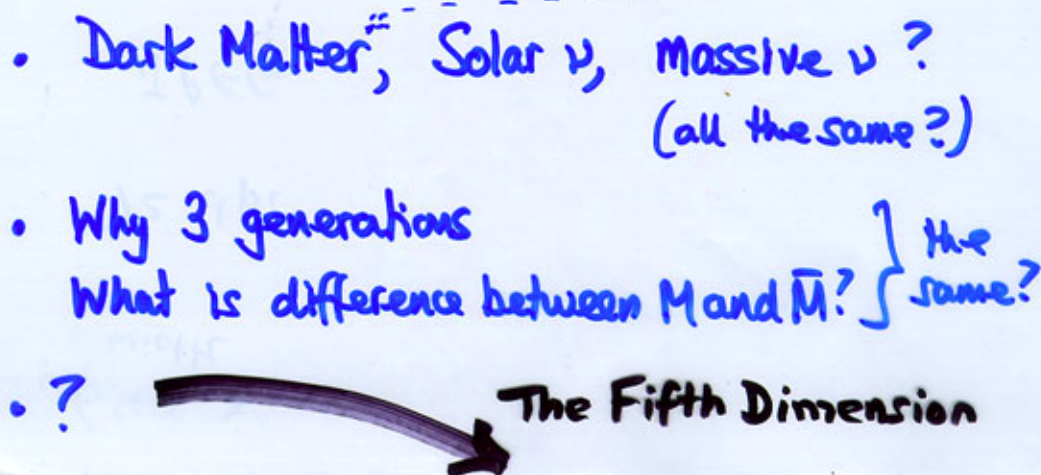 • Dark Matter, Solar ν, massive ν ?
(all the same?)
• Why 3 generations
What is difference between M and M̄? } the same?
• ? The Fifth Dimension